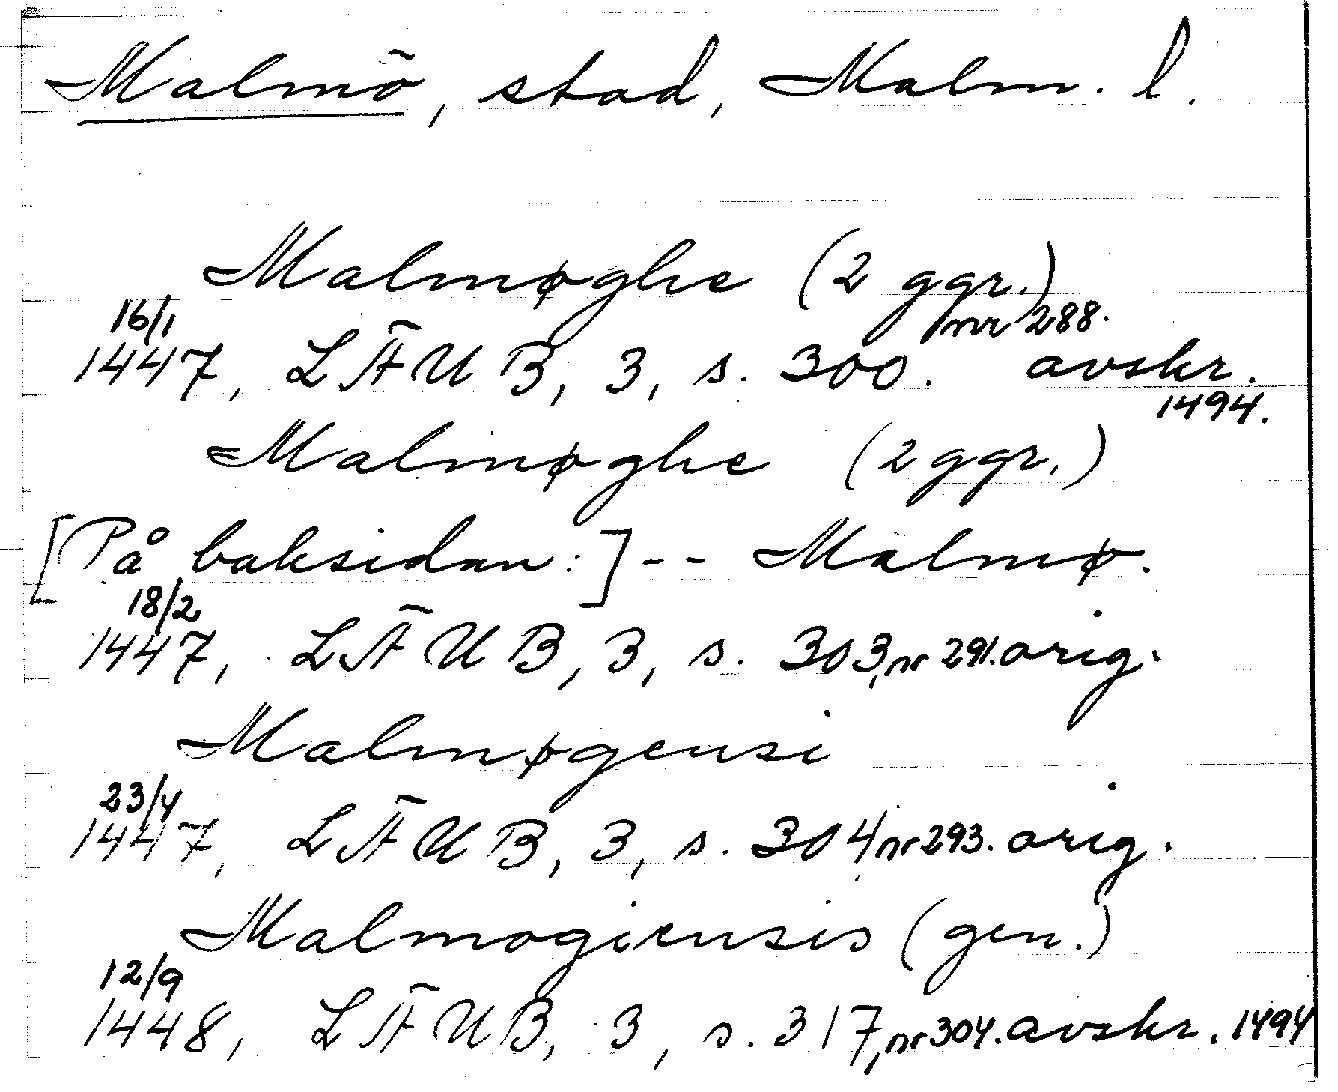 Malmö, stad, Malm. l.
Malmøghe (2 ggr.)
16/1 1447, LÄUB, 3, s. 300. nr 288. avskr. 1494.
Malmøghe (2 ggr.)
[På baksidan:] -- Malmø.
18/2 1447, LÄUB, 3, s. 303, nr 291. orig.
Malmøgensi
23/4 1447, LÄUB, 3, s. 304 nr 293. orig.
Malmogiensis (gen.)
12/9 1448, LÄUB, 3, s. 317, nr 304. avskr. 1494